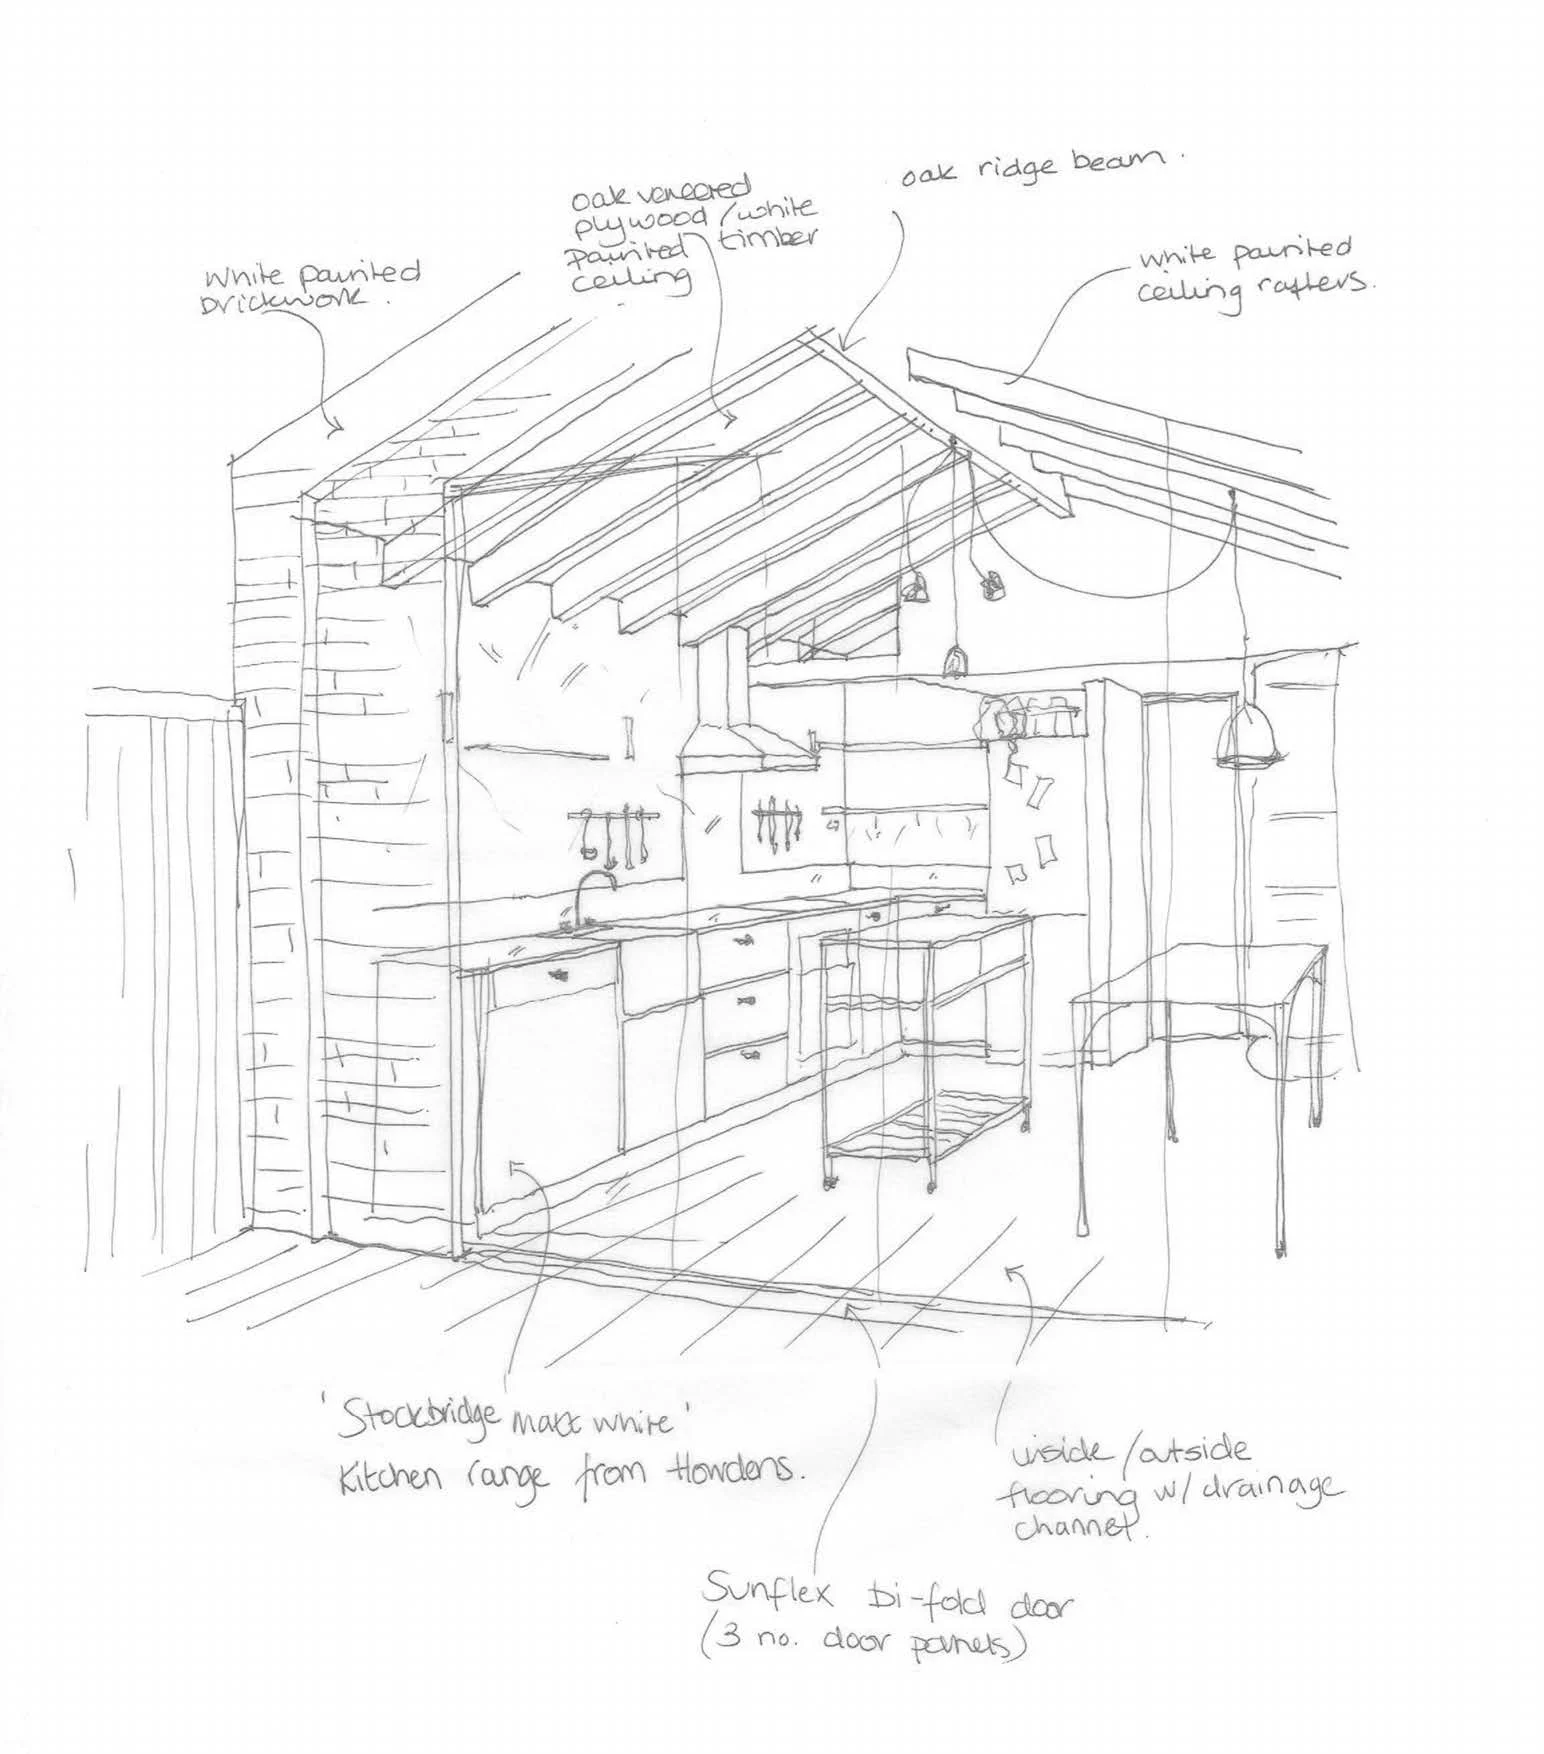 oak ridge beam.
oak veneered
plywood / white
painted timber
ceiling
white painted
ceiling rafters.
White painted
brickwork.
'Stockbridge matt white'
Kitchen range from Howdens.
inside/outside
flooring w/ drainage
channel.
Sunflex bi-fold door
(3 no. door panels)